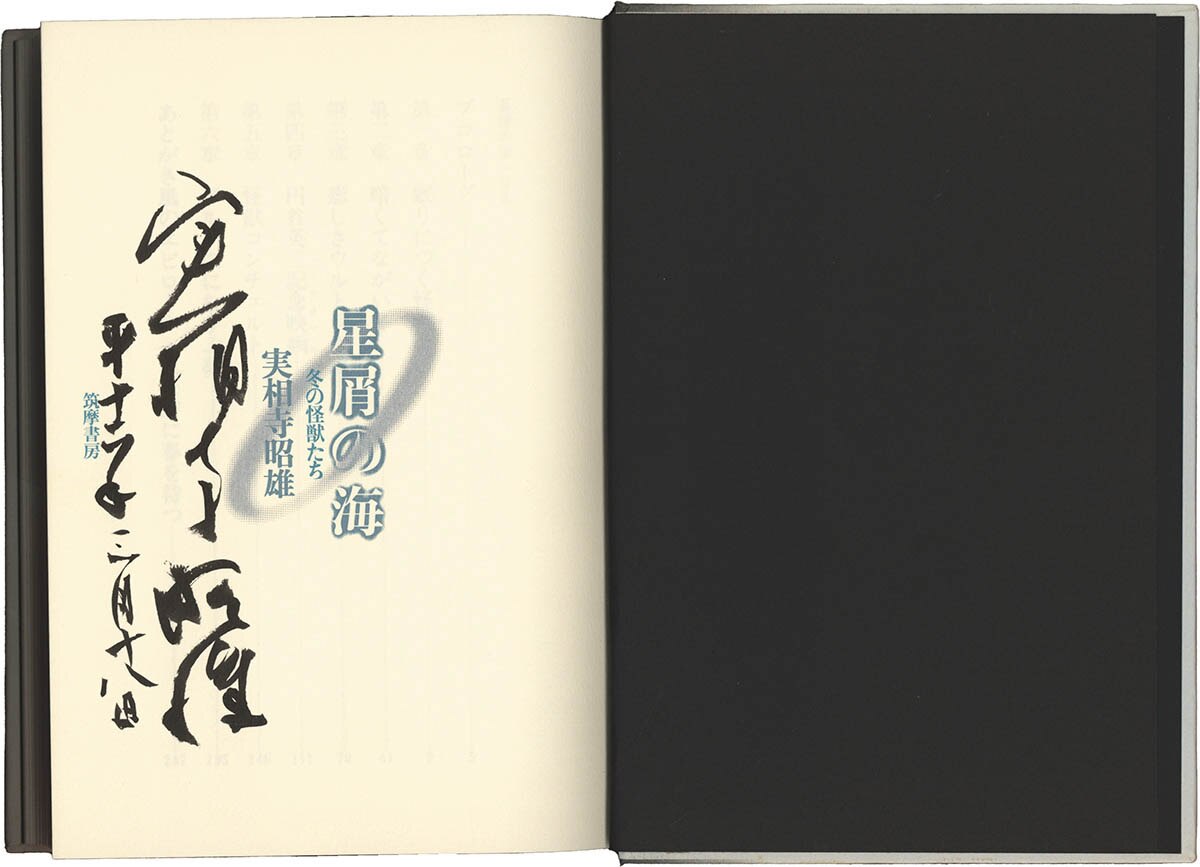 星屑の海
冬の怪獣たち
実相寺昭雄
實相寺昭雄
平十一年三月十八日
筑摩書房